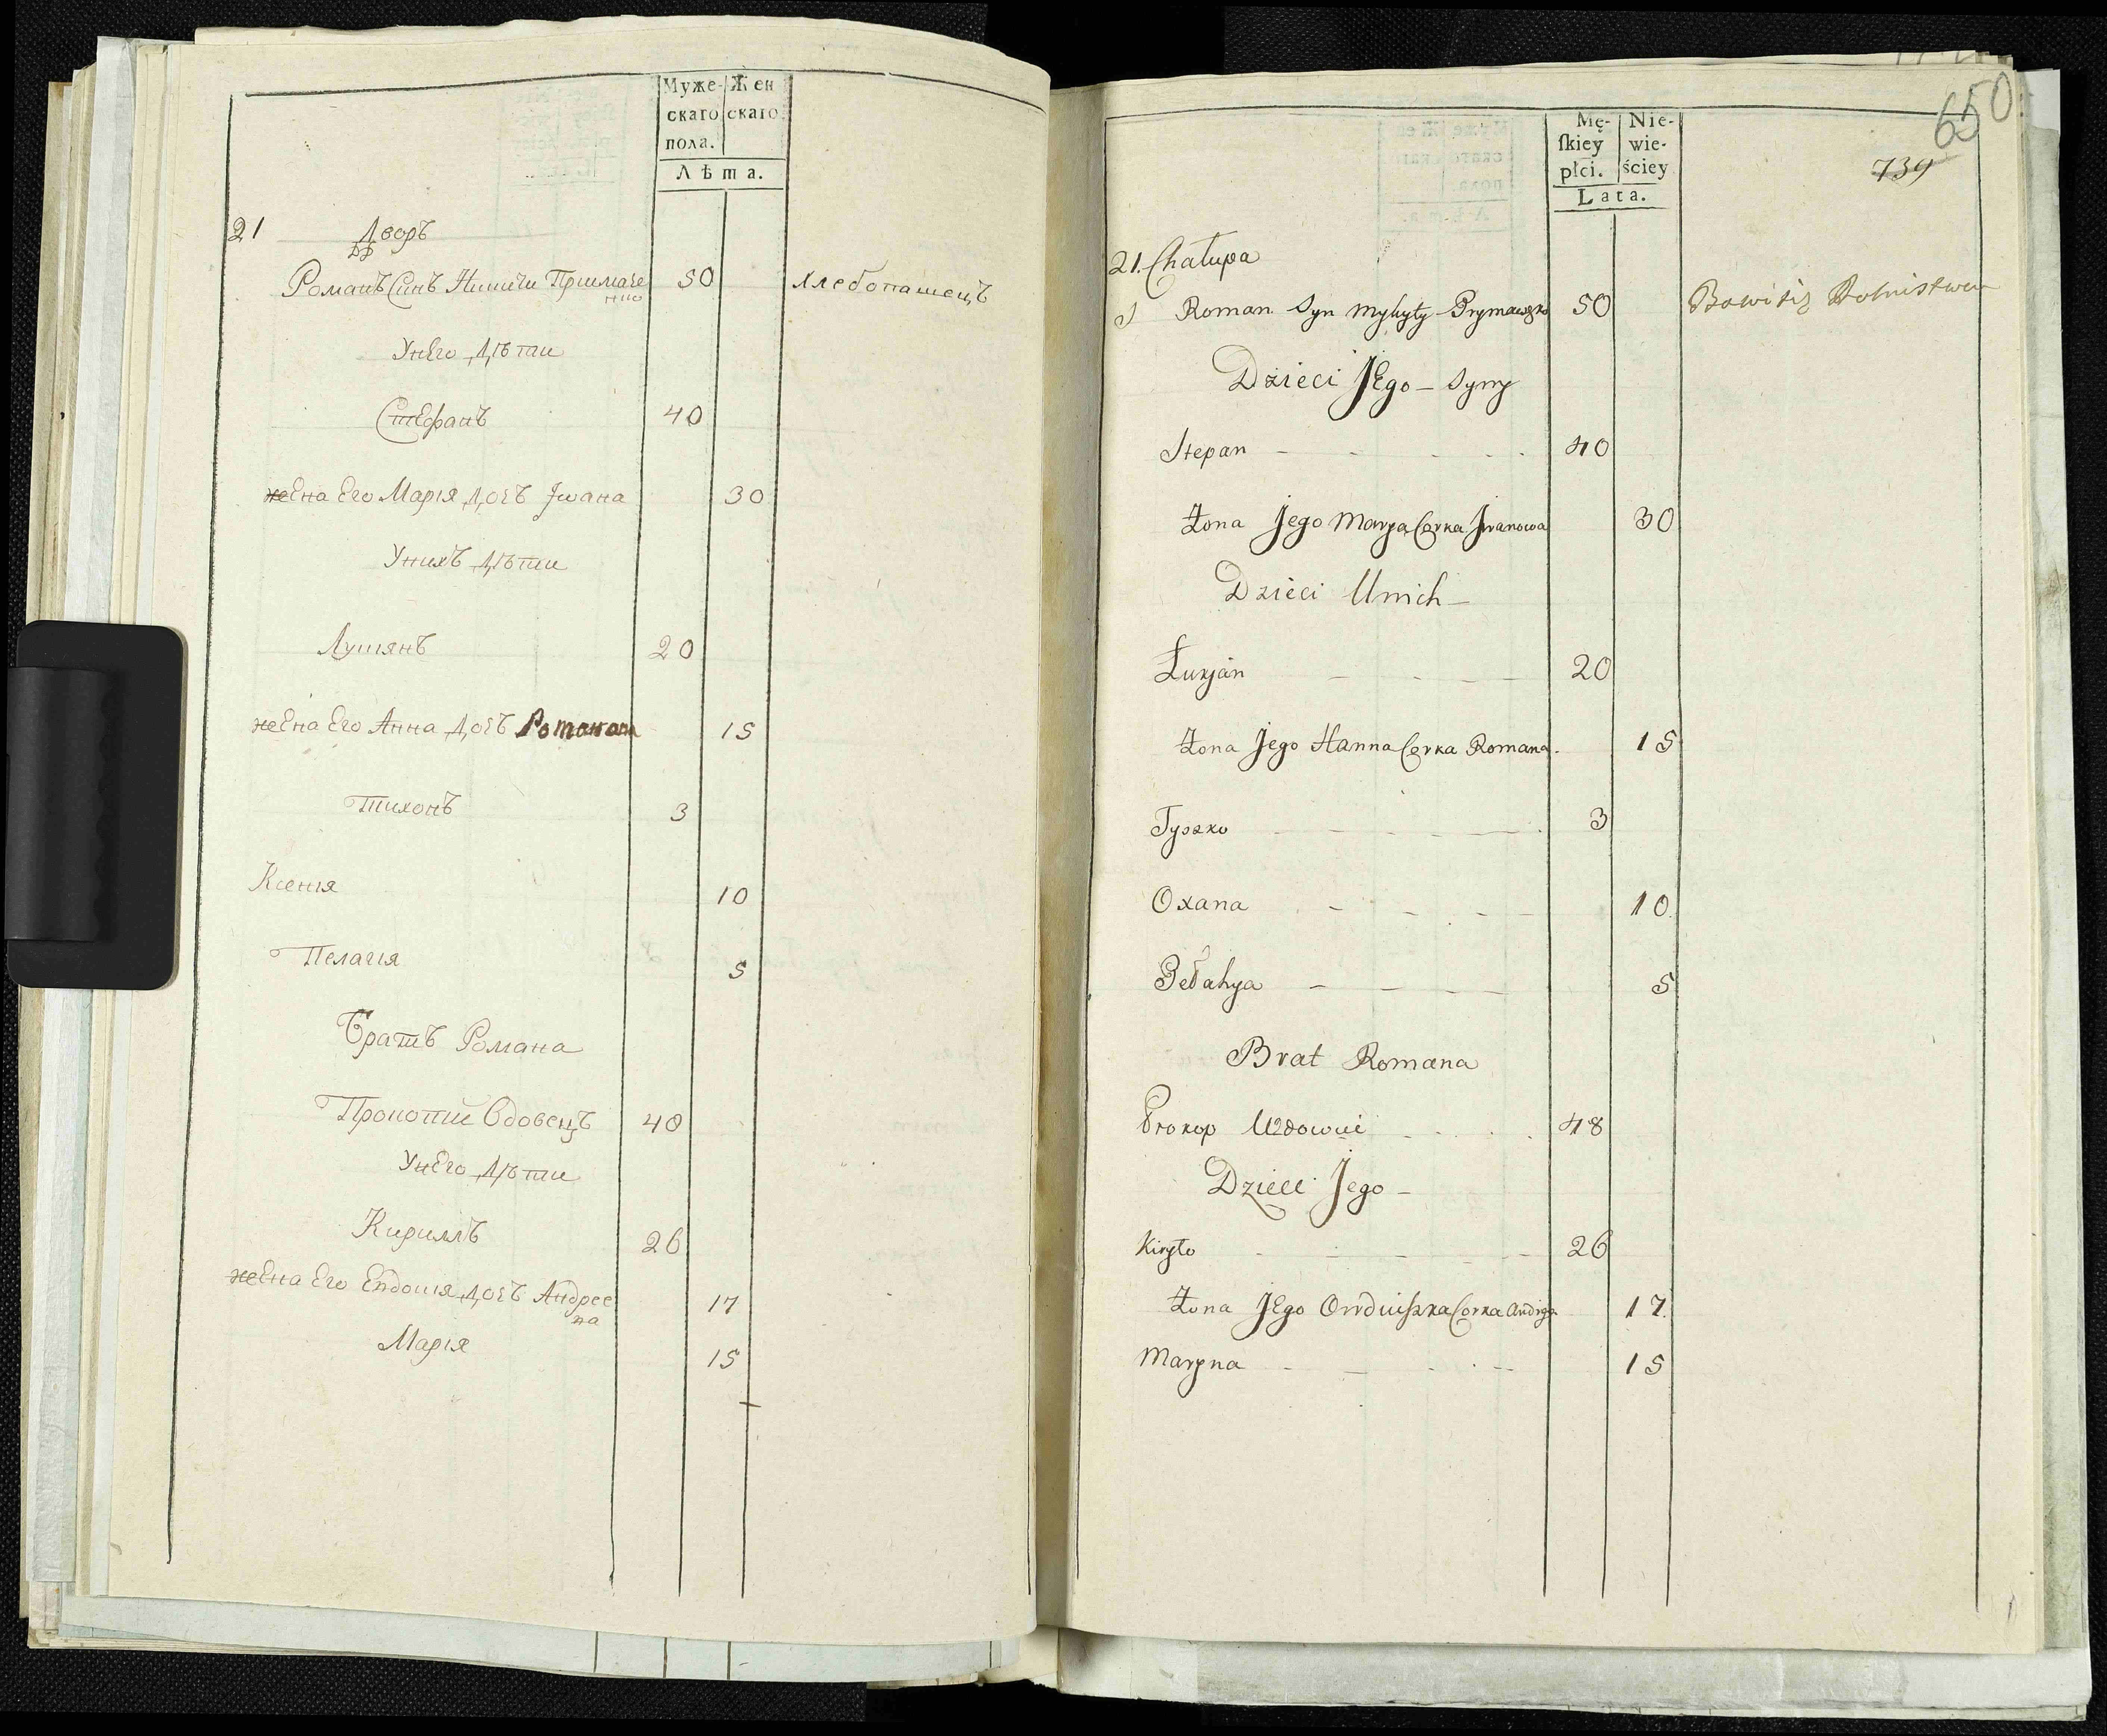 Муже-
скаго
пола.
Жен
скаго
Лѣта.
21 Дворъ
Романъ Синъ Никити Примаче
нко
50
Хлебопашецъ
Унего Дѣти
Стефанъ 40
жена Его Марія Дочъ Iвана 30
Унихъ Дѣти
Лукянъ 20
жена Его Анна Дочъ Романа 15
Тихонъ 3
Ксенія 10
Пелагія 5
Братъ Романа
Прокопий Вдовецъ 40
Унего Дѣти
Кирилъ 26
жена Его Евдокия Дочъ Андрее
на
17
Марія 15
650
739
Mę-
ſkiey
płci.
Nie-
wie-
ściey
Lata.
21. Chałupa
Roman Syn Mykyty Prymaczęko 50 Bawi się Rolnistwem
Dzieci Jego - Syny
Stepan 40
Żona Jego Marya Corka Jwanowa 30
Dzieci Unich
Łukjan 20
Żona Jego Hanna Corka Romana. 15
Tyszko 3
Oxana 10
Pełahya 5
Brat Romana
Prokop Wdowiec 48
Dzieci Jego
Kiryło 26
Żona Jego Owduſzka Corka Andrya 17
Maryna 15